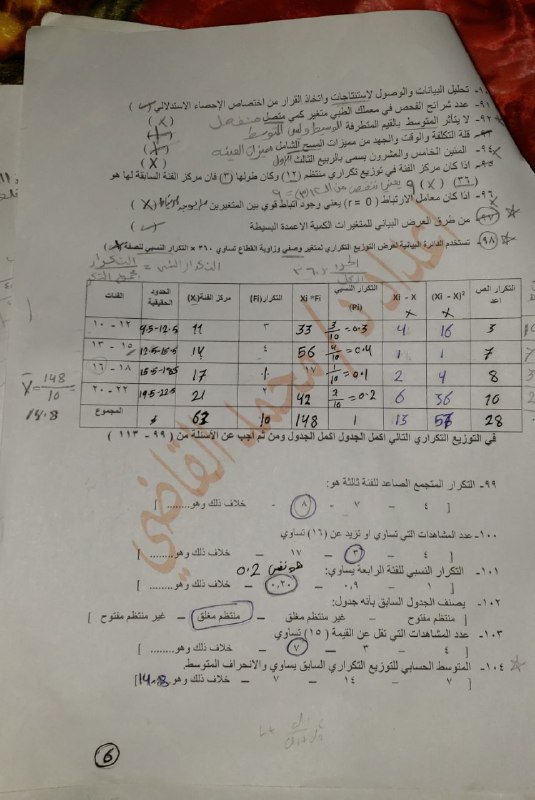 ٩٠- تحليل البيانات والوصول لاستنتاجات واتخاذ القرار من اختصاص الإحصاء الاستدلالي (✓)
٩١- عدد شرائح الفحص في معملك الطبي متغير كمي متصل منفصل (X)
٩٢- لا يتأثر المتوسط بالقيم المتطرفة الوسيط وليس المتوسط (X)
٩٣- قلة التكلفة والوقت والجهد من مميزات المسح الشامل مميزات العينة (X)
٩٤- المئين الخامس والعشرون يسمى بالربيع الثالث الأول (X)
٩٥- اذا كان مركز الفئة في توزيع تكراري منتظم (١٢) وكان طولها (٣) فان مركز الفئة السابقة لها هو
(٣٦) (X) ٩
٩٦- اذا كان معامل الارتباط (r = 0) يعني وجود ارتباط قوي بين المتغيرين (X)
٩٧- من طرق العرض البياني للمتغيرات الكمية الاعمدة البسيطة
٩٨- تستخدم الدائرة البيانية لعرض التوزيع التكراري لمتغير وصفي وزاوية القطاع تساوي ٣٦٠ × التكرار النسبي للصفة
الفئات الحدود الحقيقية مركز الفئة(X) التكرار(Fi) Xi *Fi التكرار النسبي (Pi) Xi - X (Xi - X)² التكرار الصاعد
١٠ - ١٢ 9.5-12.5 11 ٣ 33 3/10 =0.3 4 16 3
١٣ - ١٥ 12.5-15.5 14 ٤ 56 4/10 =0.4 1 1 7
١٦ - ١٨ 15.5-18.5 17 ١ ١٧ 1/10 =0.1 2 4 8
٢٠ - ٢٢ 19.5-22.5 21 ٢ 42 2/10 =0.2 6 36 10
المجموع 63 10 148 1 13 57 28
X = 148/10 =
14.8
في التوزيع التكراري التالي اكمل الجدول اكمل الجدول ومن ثم اجب عن الأسئلة من (٩٩ - ١١٣)
٩٩- التكرار المتجمع الصاعد للفئة ثالثة هو:
[ ٤ – ٧ – ٨ – خلاف ذلك وهو........ ]
١٠٠- عدد المشاهدات التي تساوي او تزيد عن (١٦) تساوي
[ ٤ – ٣ – ١٧ – خلاف ذلك وهو........ ]
١٠١- التكرار النسبي للفئة الرابعة يساوي: هو نفس 0.2
[ ١ – ٠,٩ – ٠,٢٠ – خلاف ذلك وهو........ ]
١٠٢- يصنف الجدول السابق بأنه جدول:
[ منتظم مفتوح – غير منتظم مغلق – منتظم مغلق – غير منتظم مفتوح ]
١٠٣- عدد المشاهدات التي تقل عن القيمة (١٥) تساوي
[ ٤ – ٣ – ٧ – خلاف ذلك وهو........ ]
١٠٤- المتوسط الحسابي للتوزيع التكراري السابق يساوي والانحراف المتوسط
[ ٧ – ١٤ – ٧ – خلاف ذلك وهو 14.8 ]
6